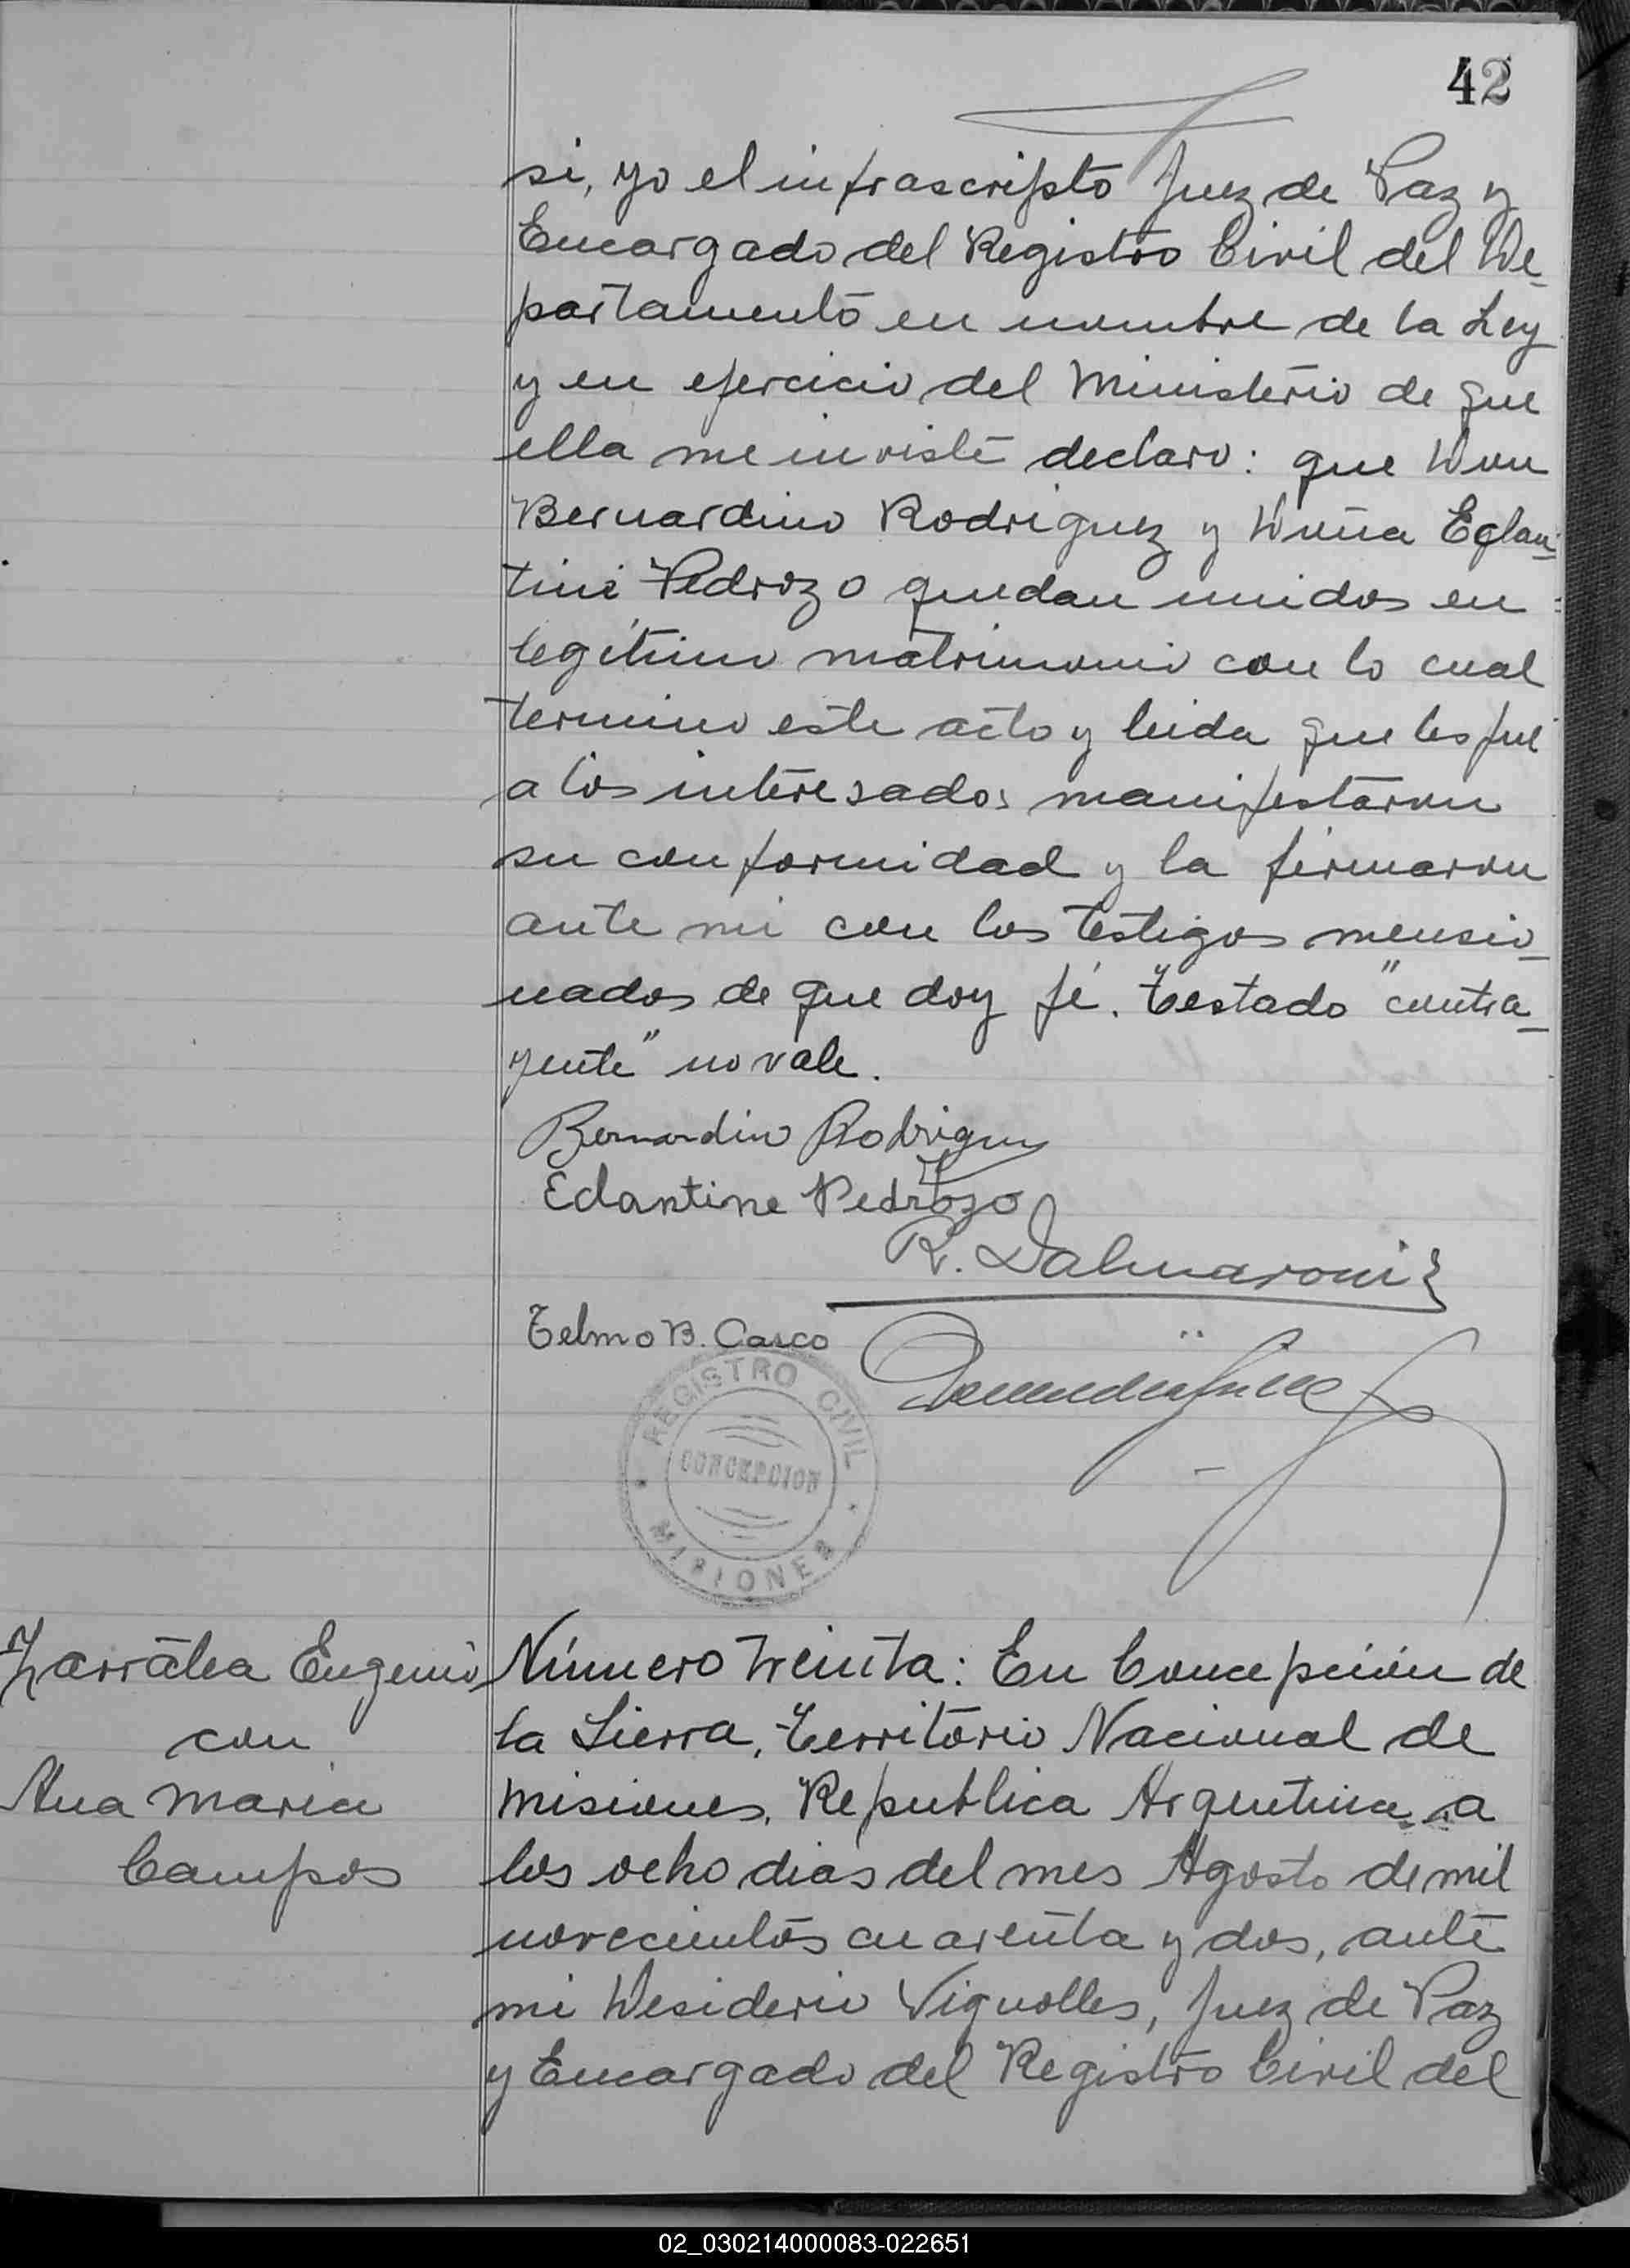 42
si, yo el infrascripto Juez de Paz y
Encargado del Registro Civil del De_
partamento en nombre de la Ley
y en ejercicio del Ministerio de que
ella me inviste declaro: que Don
Bernardino Rodriguez y Doña Eglan_
tine Pedrozo quedan unidos en
legítimo matrimonio con lo cual
termino este acto y leida que les fué
a los interesados manifestaron
su conformidad y la firmaron
ante mi con los testigos mensio_
nados de que doy fé. Testado "contra_
yente" no vale.
Bernardino Rodriguez
Eclantine Pedrozo
R. Dalmaroni
Telmo B. Casco
REGISTRO CIVIL
CONCEPCION
MISIONES
Zarratea Eugenio
con
Ana Maria
Campos
Número treinta: En Concepción de
la Sierra, Territorio Nacional de
Misiones, Republica Argentina a
los ocho dias del mes Agosto de mil
novecientos cuarenta y dos, ante
mi Desiderio Vignolles, Juez de Paz
y Encargado del Registro Civil del
02_030214000083-022651